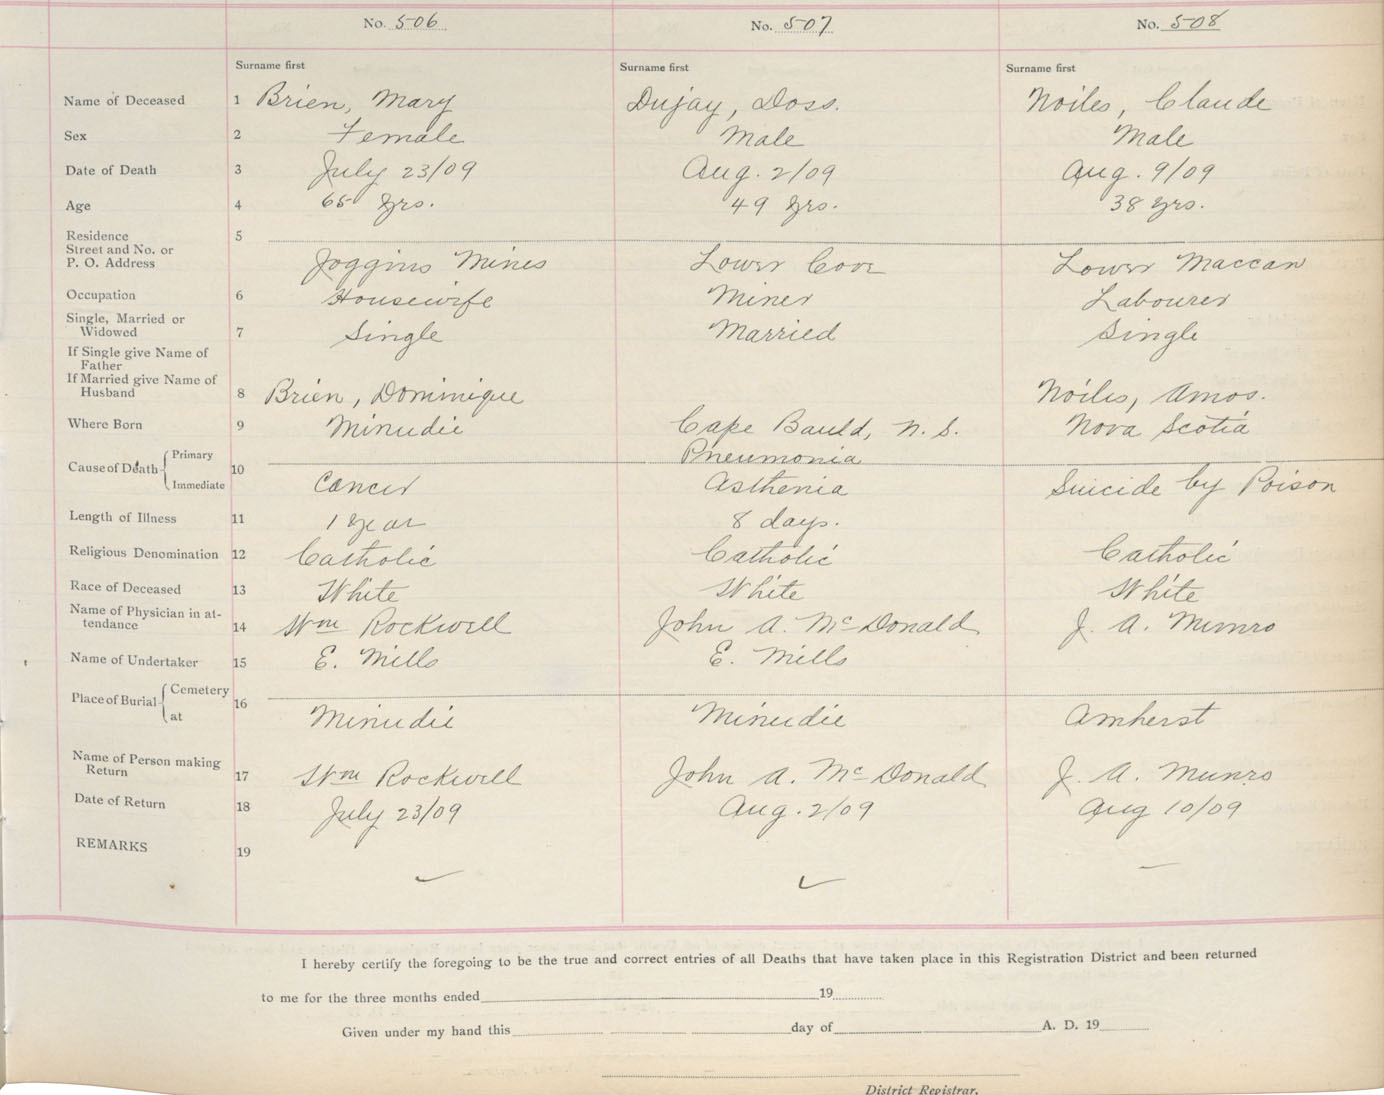 No. 506 No. 507 No. 508
Surname first Surname first Surname first
Name of Deceased 1 Brien, Mary Dujay, Doss. Noiles, Claude
Sex 2 Female Male Male
Date of Death 3 July 23/09 Aug. 2/09 Aug. 9/09
Age 4 65 yrs. 49 yrs. 38 yrs.
Residence 5
Street and No. or
P. O. Address Joggins Mines Lower Cove Lower Maccan
Occupation 6 Housewife Miner Labourer
Single, Married or
Widowed 7 Single Married Single
If Single give Name of
Father
If Married give Name of
Husband 8 Brien, Dominique Noiles, Amos.
Where Born 9 Minudie Cape Bauld, N. S. Nova Scotia
Cause of Death Primary 10 Pneumonia
Immediate Cancer Asthenia Suicide by Poison
Length of Illness 11 1 year 8 days.
Religious Denomination 12 Catholic Catholic Catholic
Race of Deceased 13 White White White
Name of Physician in at-
tendance 14 Wm Rockwell John A. McDonald J. A. Munro
Name of Undertaker 15 E. Mills E. Mills
Place of Burial Cemetery 16
at Minudie Minudie Amherst
Name of Person making
Return 17 Wm Rockwell John A. McDonald J. A. Munro
Date of Return 18 July 23/09 Aug. 2/09 Aug 10/09
REMARKS 19
I hereby certify the foregoing to be the true and correct entries of all Deaths that have taken place in this Registration District and been returned
to me for the three months ended 19
Given under my hand this day of A. D. 19
District Registrar.